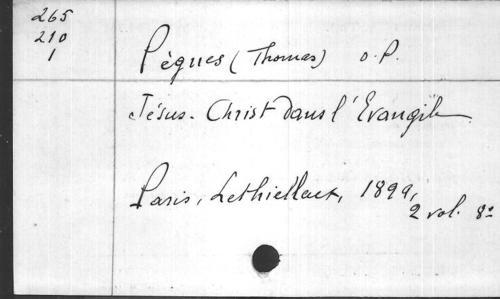 265
210
1
Pègues (Thomas) O.P.
Jésus-Christ dans l'Evangile
Paris, Lethielleux, 1899,
2 vol. 8º